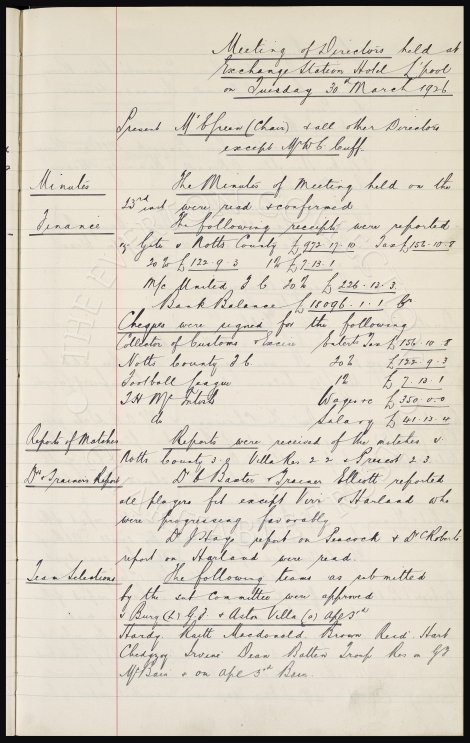 Meeting of Directors held at
Exchange Station Hotel L'pool
on Tuesday 30th March 1926
Present Mr E Green (Chair) & all other Directors
except Mr W C Cuff.
Minutes The Minutes of Meeting held on the
23rd inst were read & confirmed
Finance The following receipts were reported
Gate v Notts County £972-17-10 Tax £156-10-8
20% £122-9-3 1% £7-13-1
M/c United F C 20% £226-13-3
Bank Balance £18096-1-1 Cr
Cheques were signed for the following
Collector of Customs & Excise Enterts Tax £156-10-8
Notts County F.C. 20% £122-9-3
Football League 1% £7-13-1
T.H. McIntosh Wages &c £350-0-0
do Salary £41-13-4
Reports of Matches Reports were received of the matches v.
Notts County 3-0 Villa Res 2-2 & Prescot 2-3
Drs & Trainers Report Dr Baxter & Trainer Elliott reported
all players fit except Virr & Harland who
were progressing favorably
Dr J Hay's report on Peacock & Dr C Roberts
report on Harland were read.
Team Selections The following teams as submitted
by the sub Committee were approved
v Bury (h) G.F. & Aston Villa (a) Apl 3rd
Hardy Raitt Macdonald Brown Reid Hart
Chedgzoy Irvine Dean Batten Troup Res on GF
McBain & on Apl 3rd Bain.